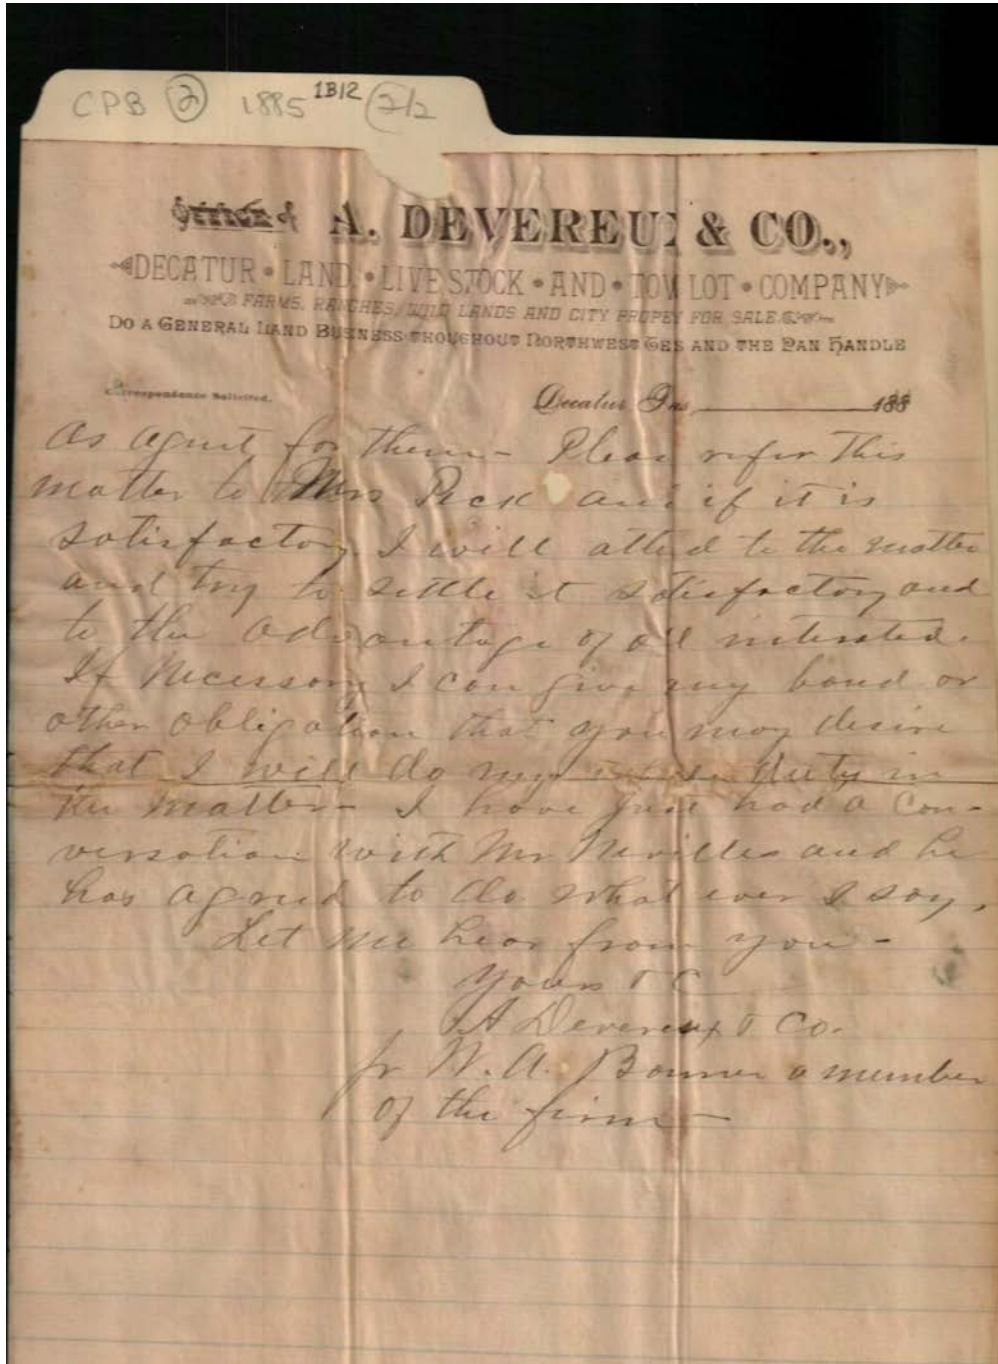 CPB 2 1885 1B12 2/2
Office of A. DEVEREU & CO.,
DECATUR • LAND • LIVE STOCK • AND • TOW LOT • COMPANY
FARMS, RANCHES, WILD LANDS AND CITY PROPEY FOR SALE
DO A GENERAL LAND BUSINESS THOUGHOUT NORTHWEST AND THE PAN HANDLE
Correspondence Solicited.
Decatur 188
As agent for them - Pleas refer This
matter to Mrs Peck and if it is
satisfactory I will atted to the matter
and try to settle it satisfactory and
to the advantage of all intersted.
If Necessary I can give my bond or
other obligation that you may desire
that I will do my duty in
the matter - I have just had a con-
versation with Mr Nevilles and he
has agreed to do what ever I say.
Let me hear from you -
Yours T C
A Devereux & Co.
pr W. A. Bonner a member
of the firm -